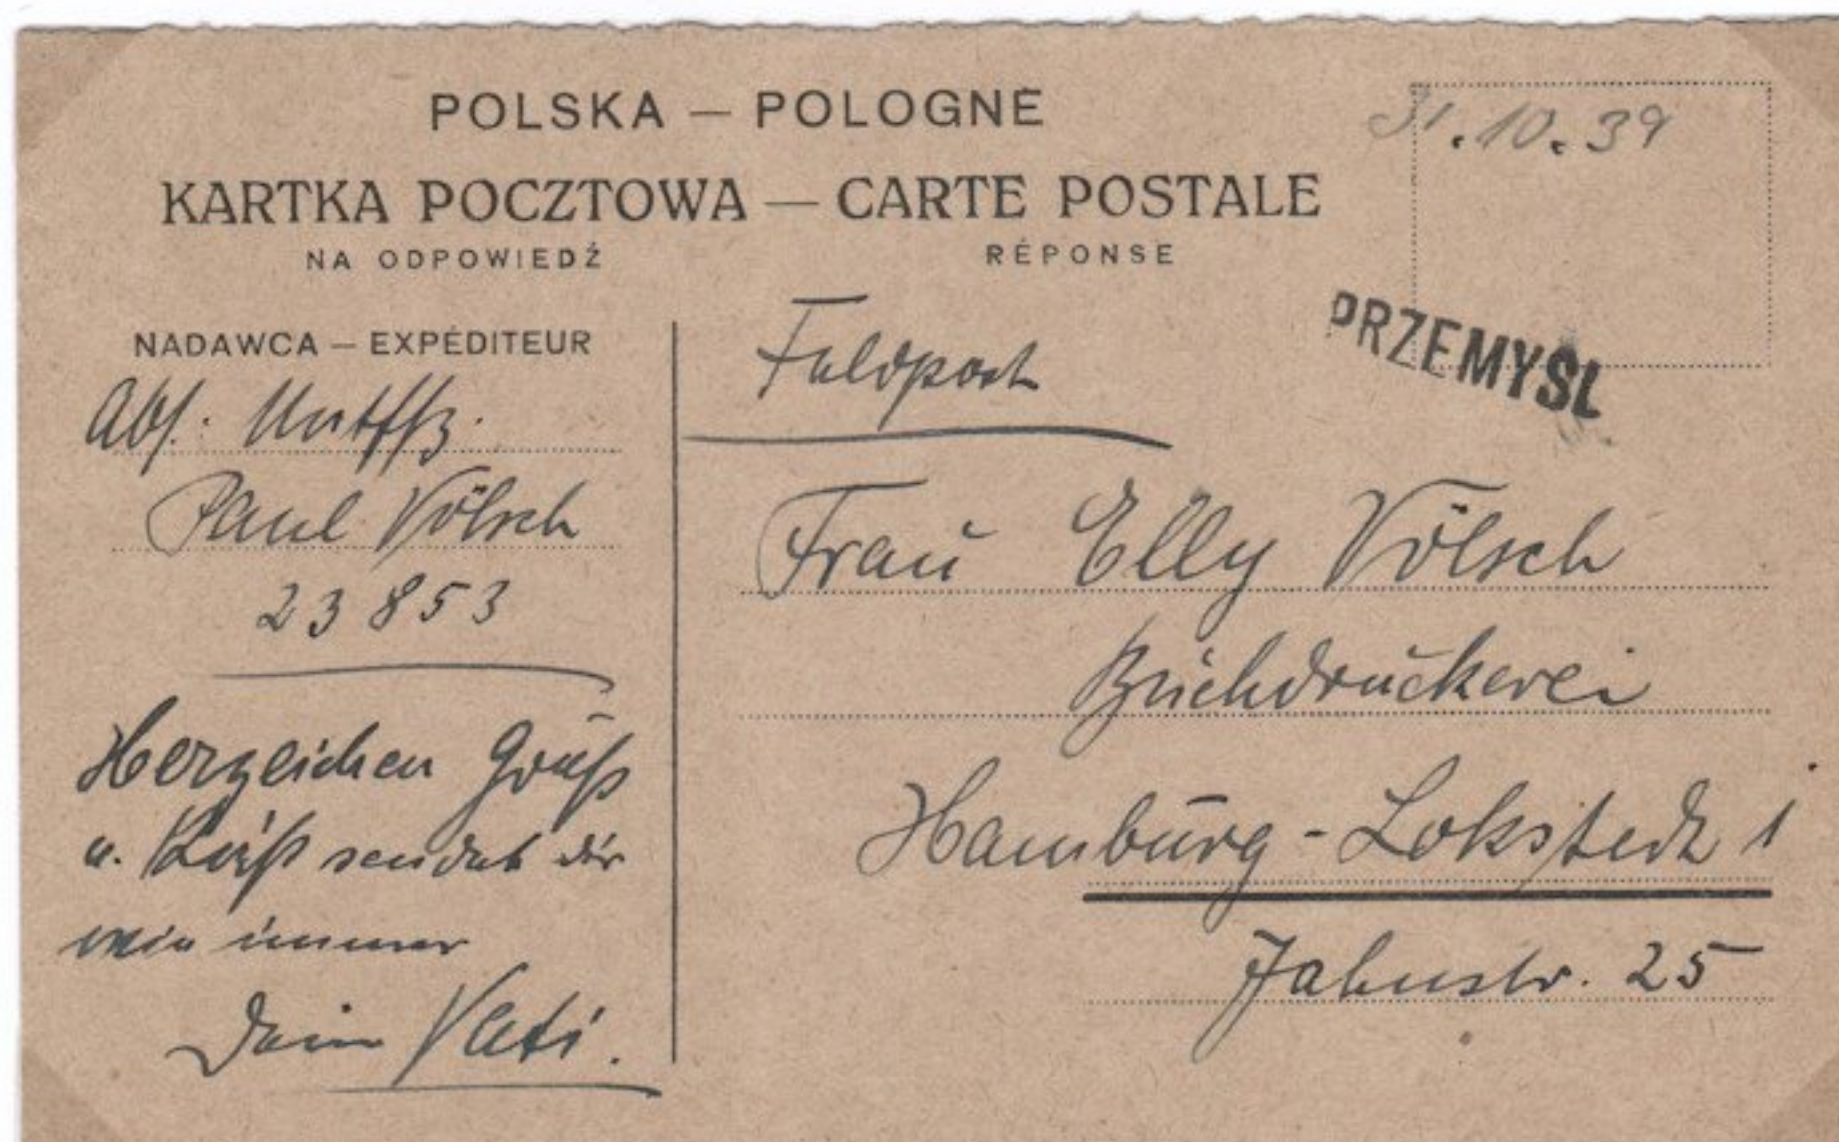 POLSKA — POLOGNE
KARTKA POCZTOWA — CARTE POSTALE
NA ODPOWIEDŹ RÉPONSE
31.10.39
PRZEMYŚL
NADAWCA — EXPÉDITEUR
Abs.:
Paul Völsch
23853
Herzlichen Gruß
u. Kuß sendet dir
wie immer
Dein Vati.
Feldpost
Frau Elly Völsch
Buchdruckerei
Hamburg - Lokstedt 1
Jahnstr. 25